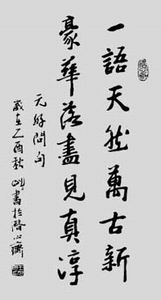 一語天然萬古新
豪華落盡見真淳
元好問句
歲在乙酉秋
書於